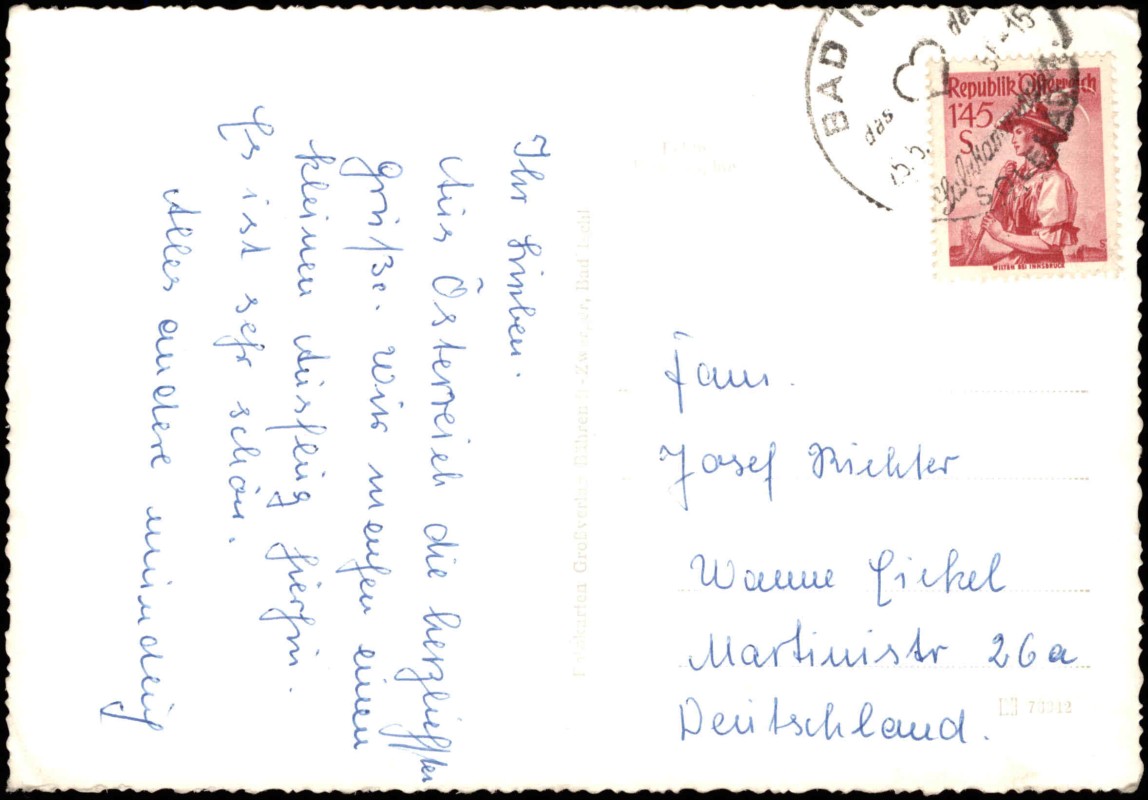 Ihr Lieben.
Aus Österreich die herzlichsten
Grüße. Wir machen einen
kleinen Ausflug hierhin.
Es ist sehr schön.
Alles andere mündlich
BAD
das
Republik Österreich
1'45
S
WILTEN BEI INNSBRUCK
Fam.
Josef Richter
Wanne Eickel
Martinistr 26a
Deutschland.